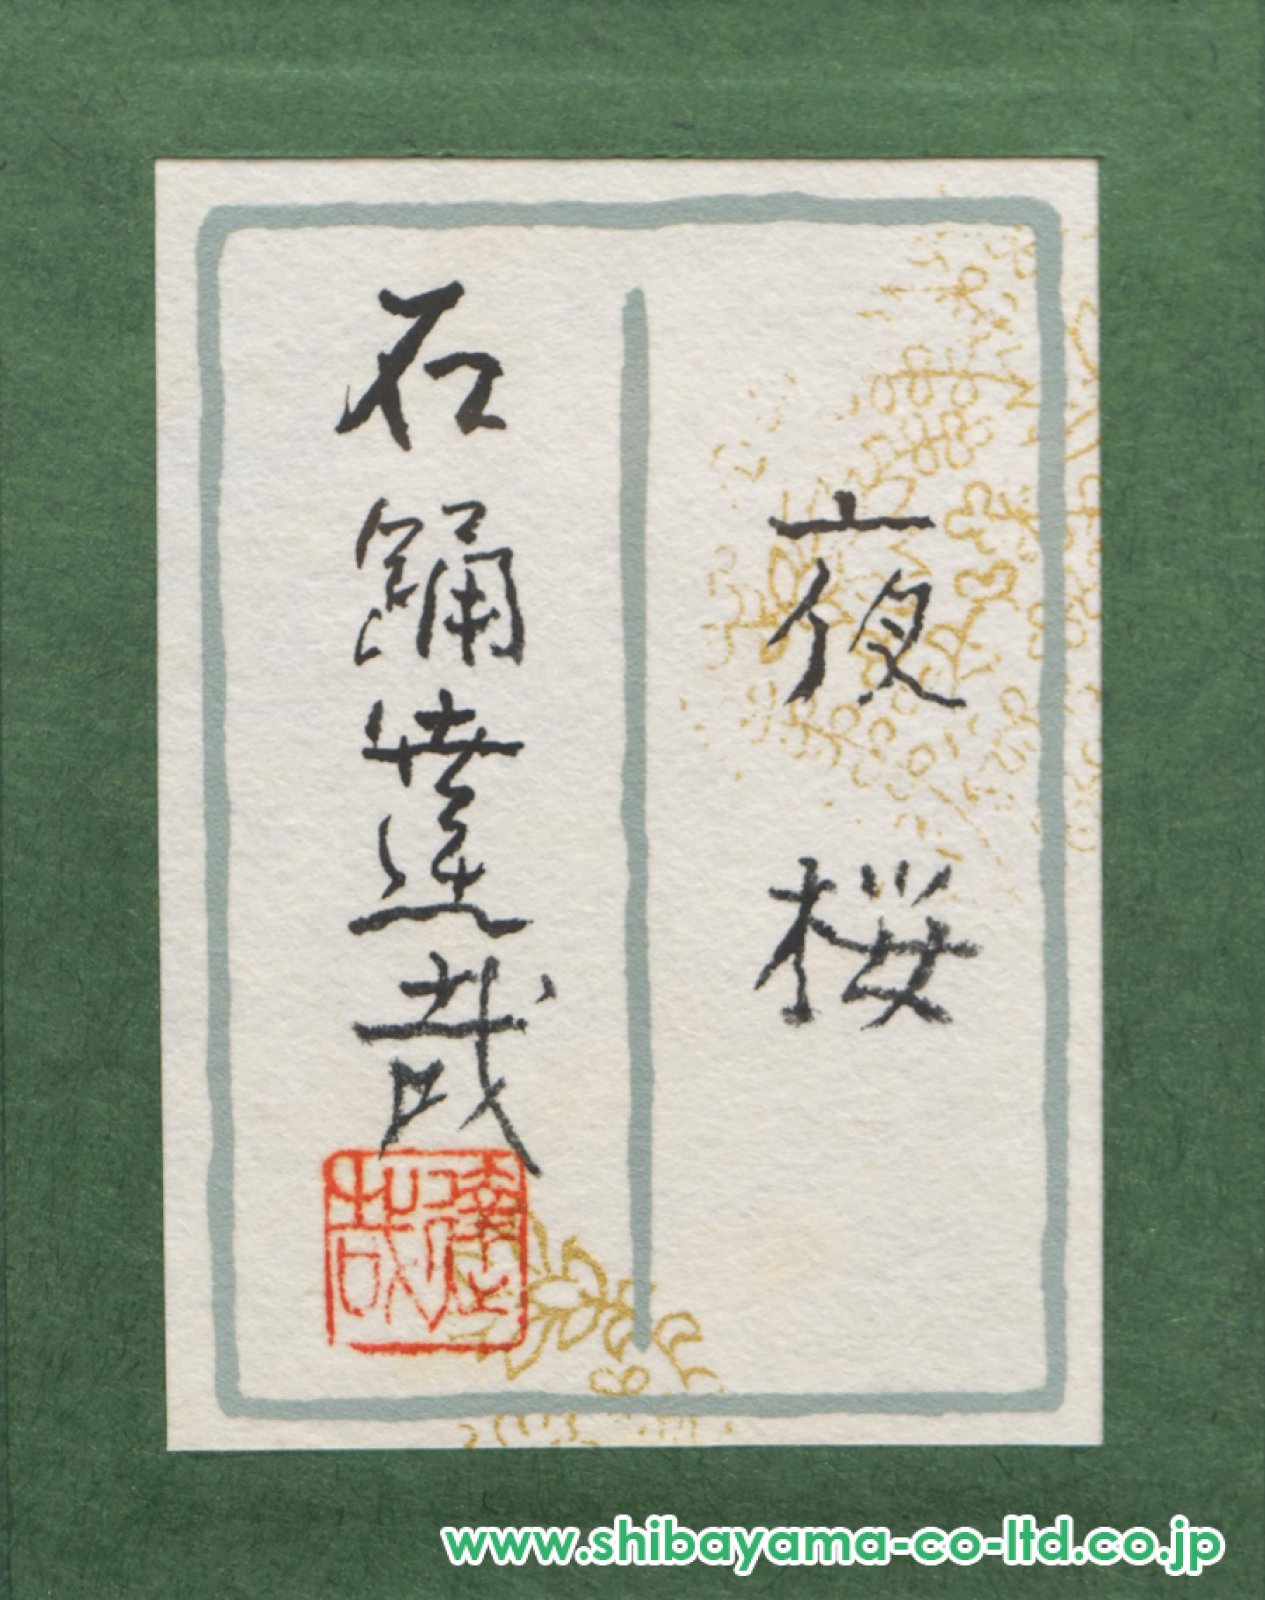 夜桜
石踊達哉
達哉
www.shibayama-co-ltd.co.jp